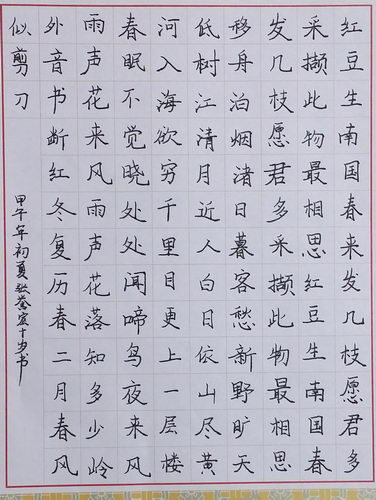 红豆生南国春来发几枝愿君多
采撷此物最相思红豆生南国春
发几枝愿君多采撷此物最相思
移舟泊烟渚日暮客愁新野旷天
低树江清月近人白日依山尽黄
河入海欲穷千里目更上一层楼
春眠不觉晓处处闻啼鸟夜来风
雨声花来风雨声花落知多少岭
外音书断红冬复历春二月春风
似剪刀
甲午年初夏张誉十岁书